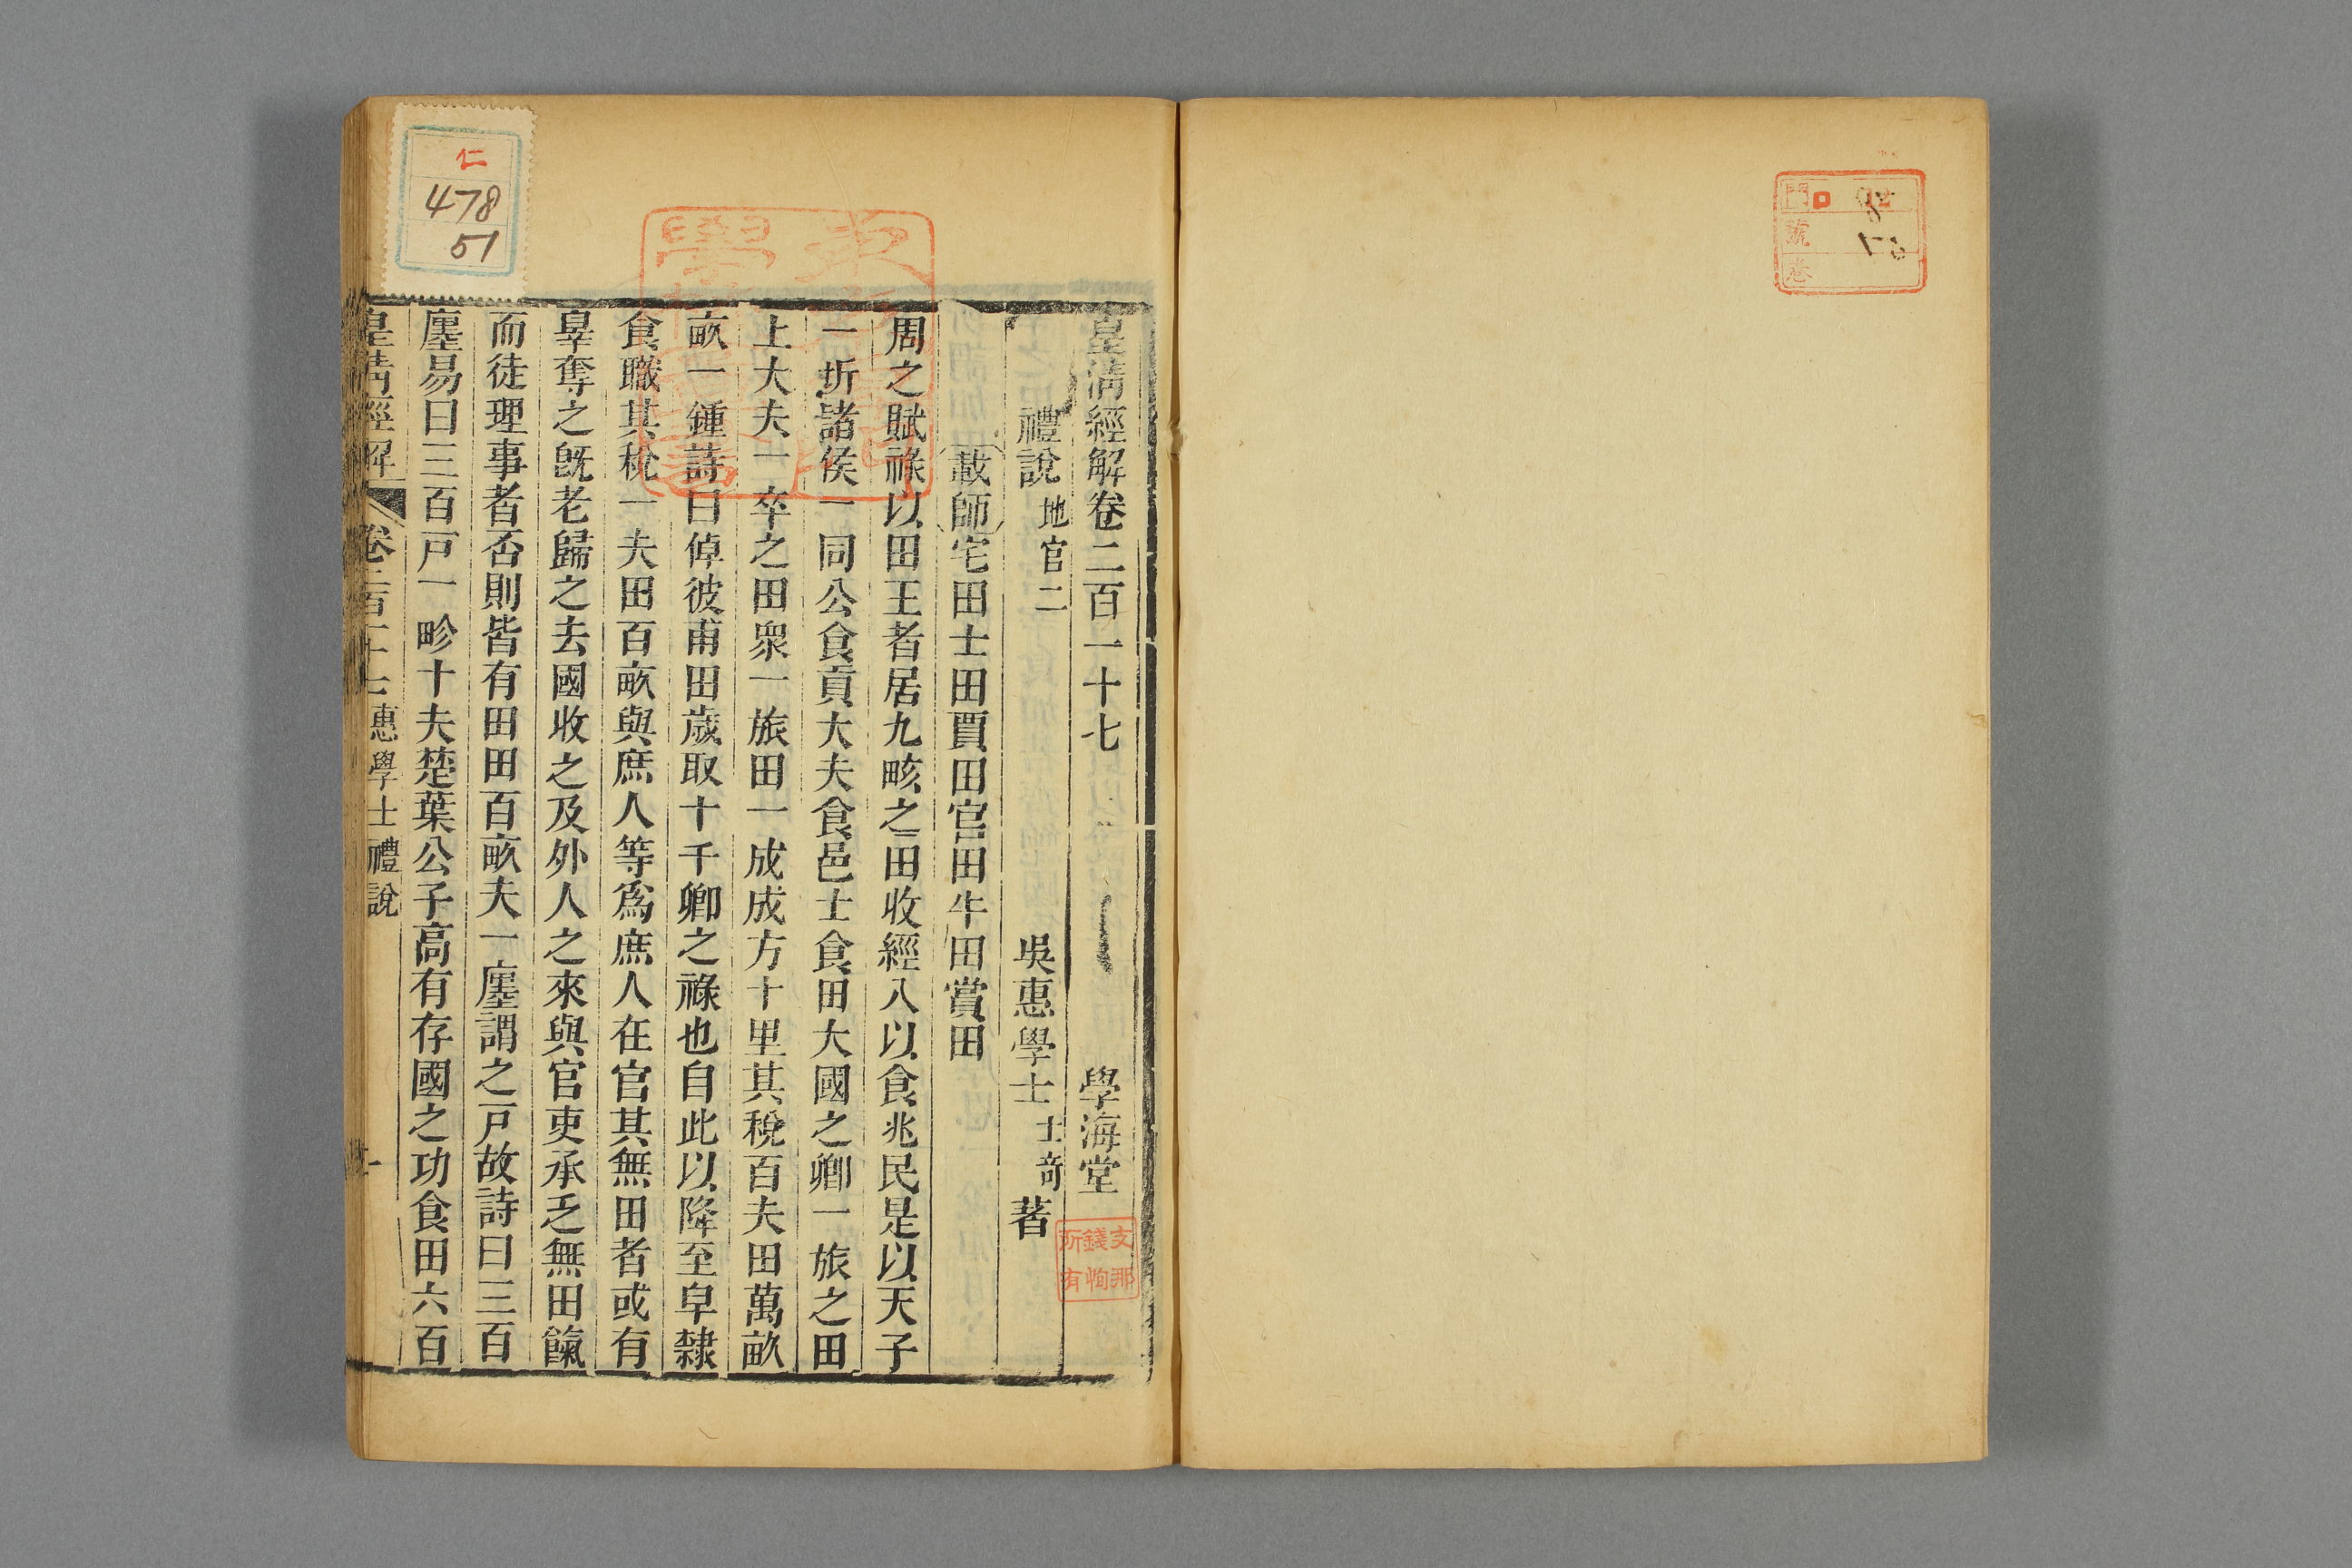 門 口
號
卷
皇清經解卷二百一十七 學海堂
禮說 地官二 吳惠學士 士奇 著
載師 宅田士田賈田官田牛田賞田
周之賦祿以田王者居九畡之田收經入以食兆民是以天子
一圻諸侯一同公食貢大夫食邑士食田大國之卿一旅之田
上大夫一卒之田衆一旅田一成成方十里其稅百夫田萬畝
畝一鍾詩曰倬彼甫田歲取十千卿之祿也自此以降至皁隸
食職其稅一夫田百畝與庶人等爲庶人在官其無田者或有
辠奪之旣老歸之去國收之及外人之來與官吏承乏無田餼
而徒理事者否則皆有田田百畝夫一廛謂之戸故詩曰三百
廛易曰三百戸一畛十夫楚葉公子高有存國之功食田六百
皇清經解 卷二百一十七 惠學士禮說 一
支那
錢恂
所有
仁
478
51